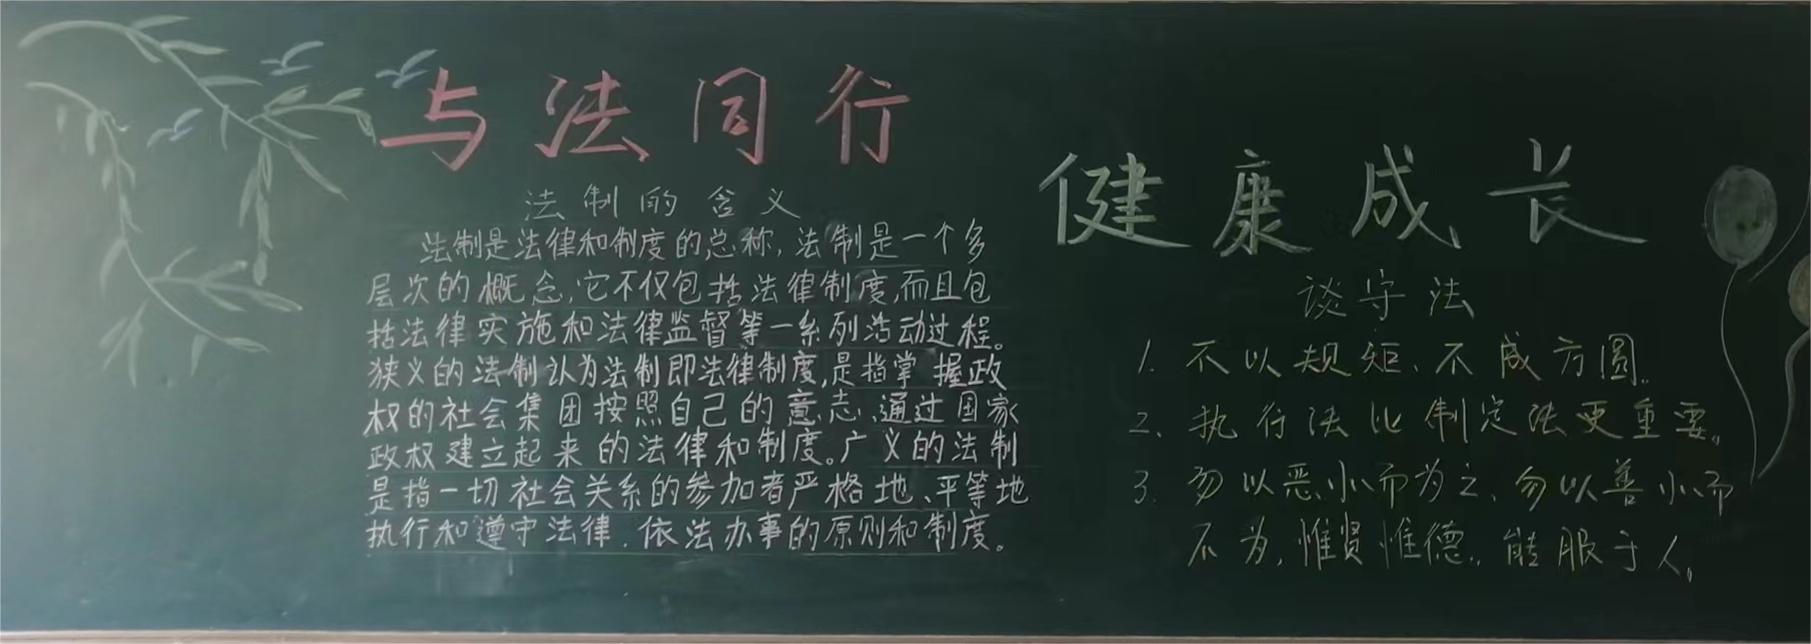 与法同行
法制的含义
法制是法律和制度的总称，法制是一个多
层次的概念，它不仅包括法律制度，而且包
括法律实施和法律监督等一系列活动过程。
狭义的法制认为法制即法律制度，是指掌握政
权的社会集团按照自己的意志、通过国家
政权建立起来的法律和制度。广义的法制
是指一切社会关系的参加者严格地、平等地
执行和遵守法律，依法办事的原则和制度。
健康成长
谈守法
1. 不以规矩、不成方圆。
2、执行法比制定法更重要。
3. 勿以恶小而为之、勿以善小而
不为，惟贤惟德，能服于人。